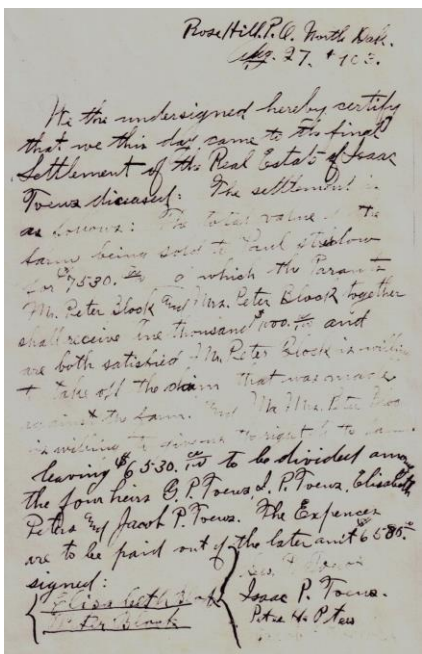 Rose Hill. P.O. North Dak.
27.
We the undersigned hereby certify
that we this day came to the final
Settlement of the Real Estate of Isaac
Toews diceased: The settlement is
as follows: The total value of the
same being sold to Paul
for $7530. of which the Parents
Mr. Peter Block and Mrs. Peter Block together
shall receive One thousand $1000. and
are both satisfied Mr. Peter Block is willing
to take off the claim that was made
against the same. And Mr Mrs. Peter Block
is willing to right to the same.
leaving $6530. to be divided among
the four heirs G. P. Toews I. P. Toews, Elisabeth
Peters and Jacob P. Toews. The Expences
are to be paid out of the later amt $6530.
signed:
Toews
Elisabeth Block
Isaac P. Toews.
Peter Block
Peter H. Peters